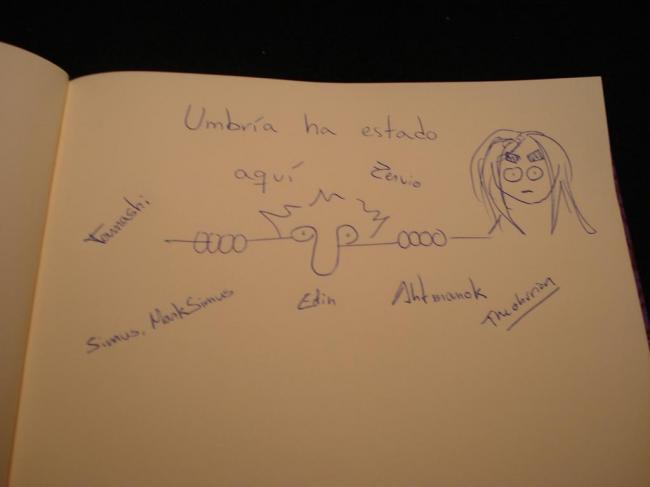 Umbría ha estado
aquí
Zervio
Yamashi
Simus, MarkSimus
Edin
Ahtmanok